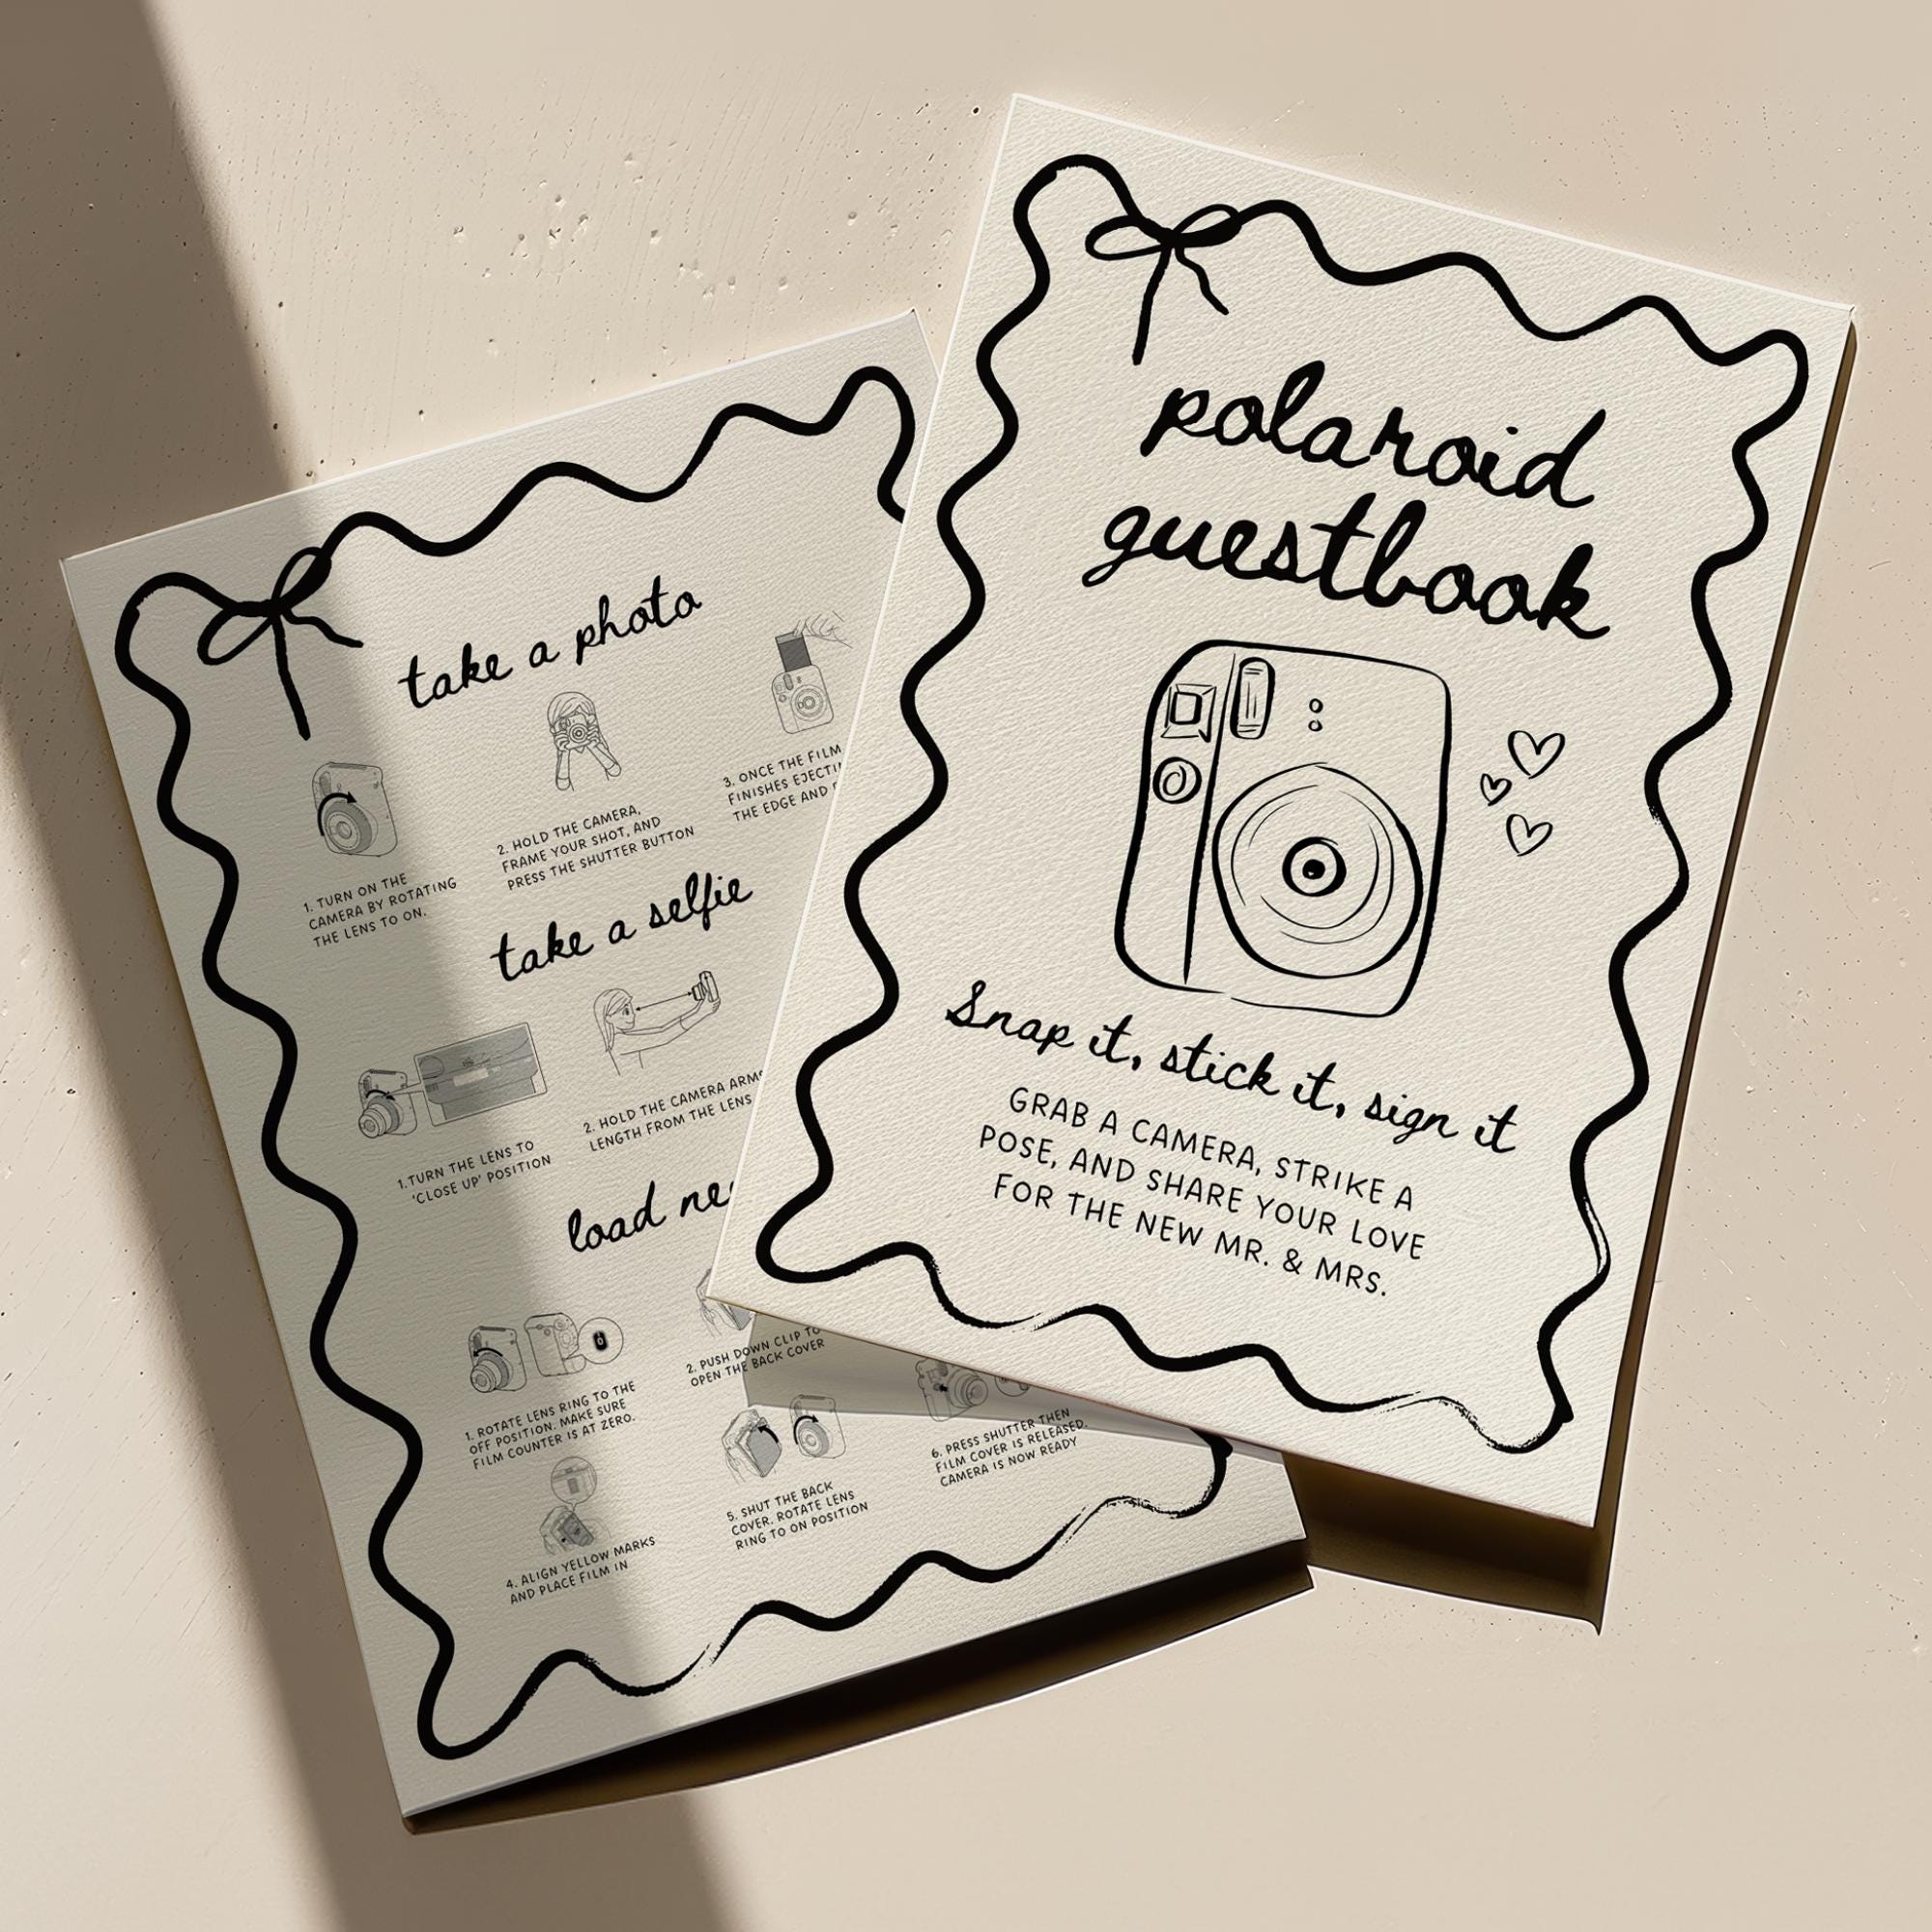 polaroid
guestbook
Snap it, stick it, sign it
GRAB A CAMERA, STRIKE A
POSE, AND SHARE YOUR LOVE
FOR THE NEW MR. & MRS.
take a photo
1. TURN ON THE
CAMERA BY ROTATING
THE LENS TO ON.
2. HOLD THE CAMERA,
FRAME YOUR SHOT, AND
PRESS THE SHUTTER BUTTON
3. ONCE THE FILM
FINISHES
THE EDGE AND
take a selfie
1.TURN THE LENS TO
'CLOSE UP' POSITION
2. HOLD THE CAMERA ARMS
LENGTH FROM THE LENS
load
1. ROTATE LENS RING TO THE
OFF POSITION. MAKE SURE
FILM COUNTER IS AT ZERO.
2. PUSH DOWN CLIP TO
OPEN THE BACK COVER
4. ALIGN YELLOW MARKS
AND PLACE FILM IN
5. SHUT THE BACK
COVER. ROTATE LENS
RING TO ON POSITION
6. PRESS SHUTTER THEN
FILM COVER IS RELEASED.
CAMERA IS NOW READY